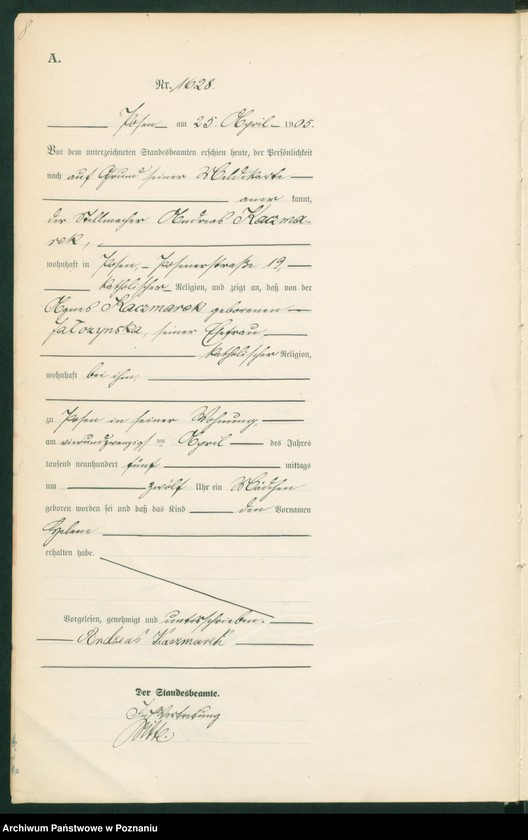 8
A.
Nr. 1628.
Posen am 25 April 1905.
Vor dem unterzeichneten Standesbeamten erschien heute, der Persönlichkeit
nach auf Grund seiner Meldekarte
aner kannt,
der Stellmacher Andreas Kaczma-
rek,
wohnhaft in Posen, Posenerstraße 19,
katholischer Religion, und zeigt an, daß von der
Agnes Kaczmarek geborenen
seiner Ehefrau,
katholischer Religion,
wohnhaft bei ihm,
zu Posen in seiner Wohnung,
am vierundzwanzigsten April des Jahres
tausend neunhundert fünf mittags
um zwölf Uhr ein Mädchen
geboren worden sei und daß das Kind den Vornamen
Helene
erhalten habe.
Vorgelesen, genehmigt und unterschrieben.
Andreas Kaczmarek
Der Standesbeamte.
In Vertretung
Archiwum Państwowe w Poznaniu